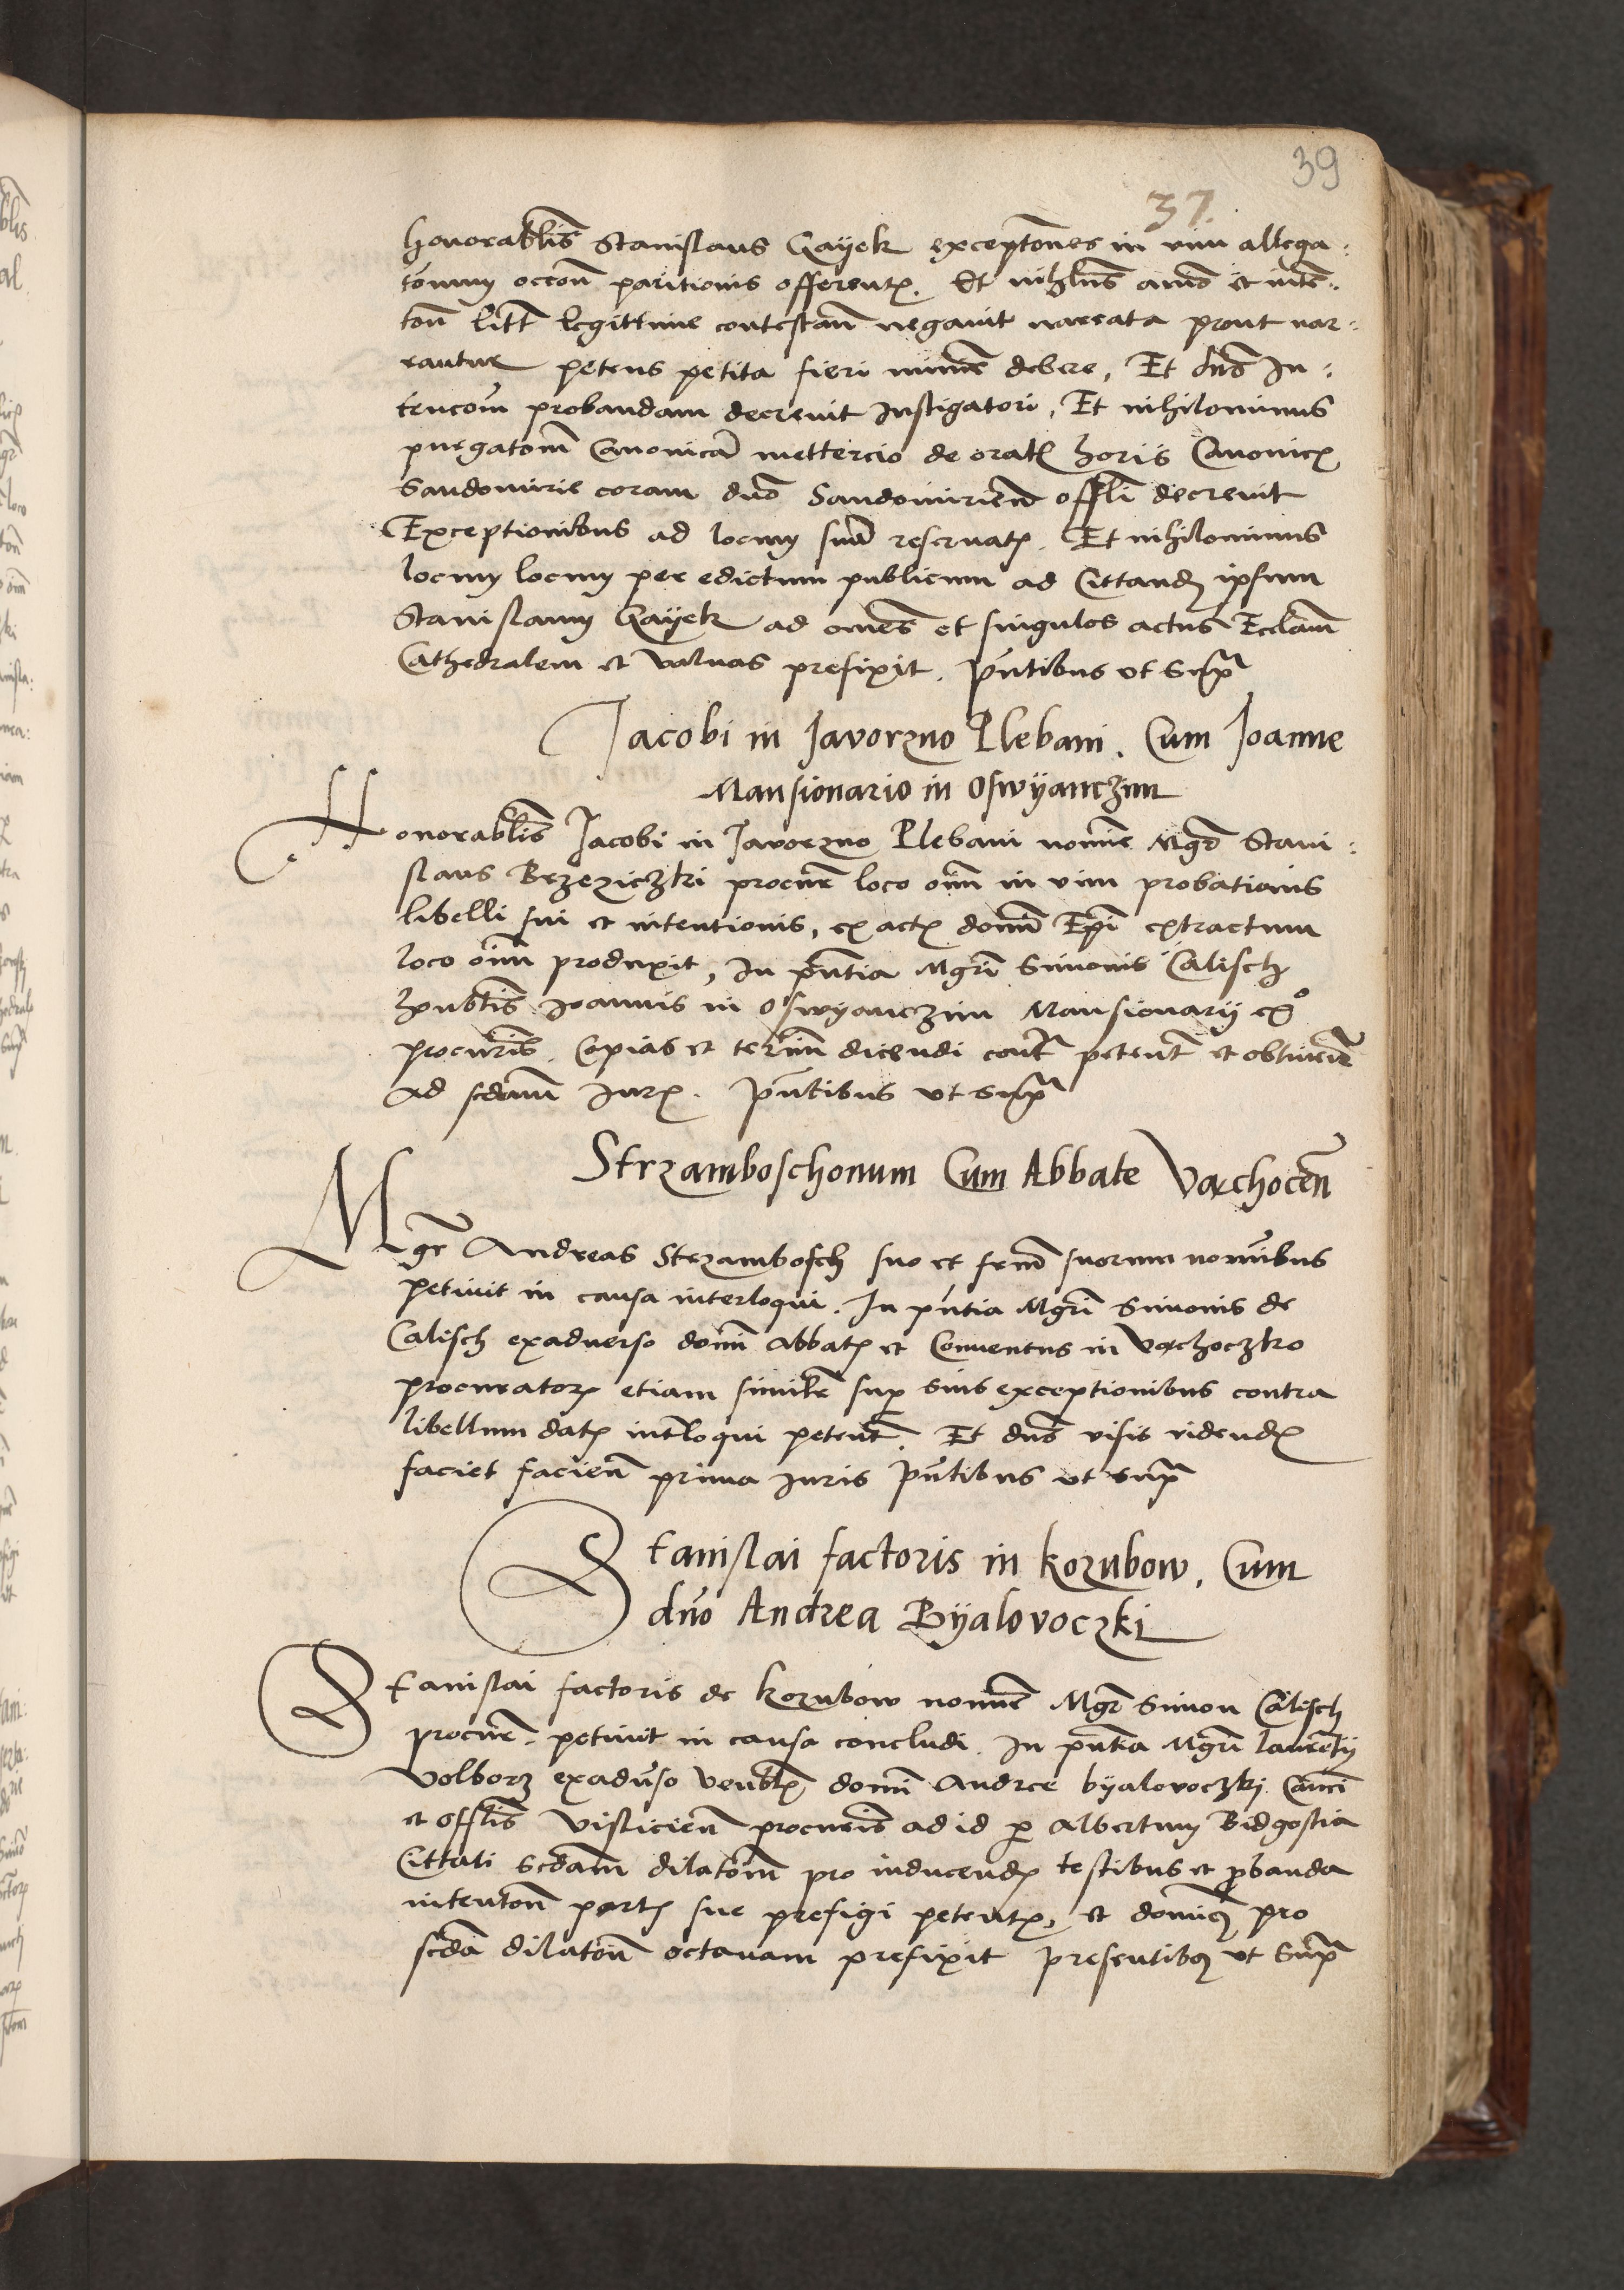 39
37.
honorablis Stanislaus Gayek exceptones in vim allega:
tonum occon paritionis offerentis. Et nihlus animo et inten:
ton litt legittime contestan negavit narrata prout nar:
rantur petens petita fieri minime debere, Et dns In:
tencom probandam decrevit Instigatori, Et nihilominus
purgatom Canonicā mettercio de oratis horis Canonicis
Sandomirie coram dno Sandomirien offli decrevit
Exceptionibus ad locum suū reservatis. Et nihilominus
locum locum per edictum publicum ad Cittandum ipsum
Stanislaum Gayek ad omes et singulos actus Eccliam
Cathedralem et valvas prefixit. Pntibus ut supra
Jacobi in Javorzno Plebani. Cum Joanne
Mansionario in Oswyanczim
Honorablis Jacobi in Javorzno Plebani nomine Mgr Stani:
slaus Brzeziczki procur loco oim in vim probationis
libelli sui et intentionis, ex actis domini Epi extractum
loco oim produxit, In pntia Mgri Simonis Calisch
honblis Joannis in Oswyanczim Mansionarij ex°
procuris. Copias et termin dicendi contra petent et obtinen
ad scdam Juris. Pntibus ut supra
Strzamboschonum Cum Abbate Vachocen
Mgr Andreas Strzambosch suo et frm suorum nominibus
petivit in causa interloqui. In pntia Mgri Simonis de
Calisch exadverso domini Abbatis et Conventus in Vachoczko
procuratoris etiam similr sup suis exceptionibus contra
libellum datis intloqui petent. Et dns visis videndis
faciet facien prima Juris Pntibus ut supra
Stanislai factoris in Kozubow. Cum
dno Andrea Byalovoczki
Stanislai factoris de Kozubow nomine Mgr Simon Calisch
procur. petivit in causa concludi. In pntia Mgri laurentij
Volborz exadverso venblis domini Andree byalovoczki Canci
et offlis Vislicien procuris ad id per Albertum Bidgostia
Cittati scdam dilatom pro inducendis testibus et probanda
intenton partis sue prefigi petentis, et dominus pro
scda dilaton octavam prefixit presentibus ut Supra